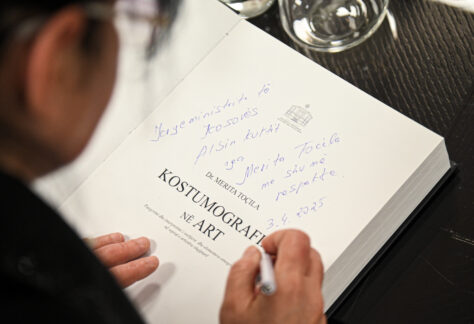 Kryeministrit të
Kosovës
Albin Kurtit
nga
Merita Tocila
me shumë
respekt.
3.4.2025
Dr. MERITA TOÇILA
KOSTUMOGRAFI
NË ART